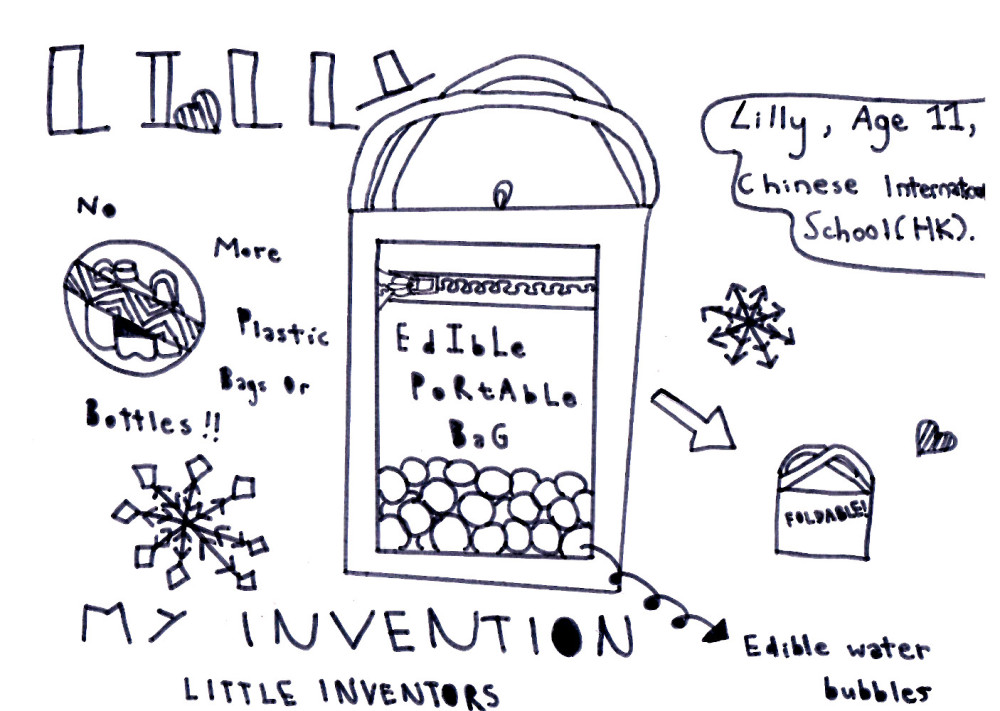 LILLY
Lilly, Age 11,
Chinese International
School(HK).
No
More
Plastic
Bags Or
Bottles!!
EdIbLe
PoRtAbLe
BaG
FOLDABLE!
MY INVENTION
LITTLE INVENTORS
Edible water
bubbles